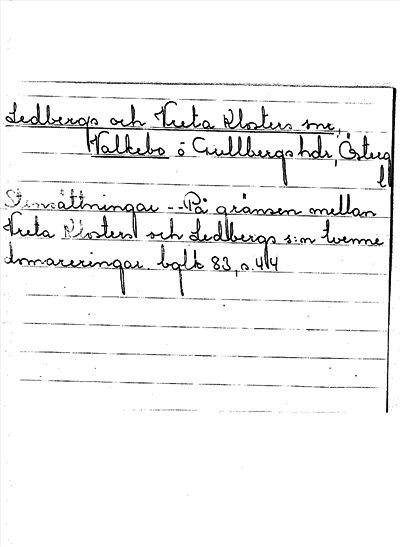 Ledbergs och Vreta Klosters snr,
Valkebo o Gullbergs hdr, Östeg
l
Stensättningar -- På gränsen mellan
Vreta Klosters och Ledbergs s:n tvenne
domareringar. bglk 83, s. 44